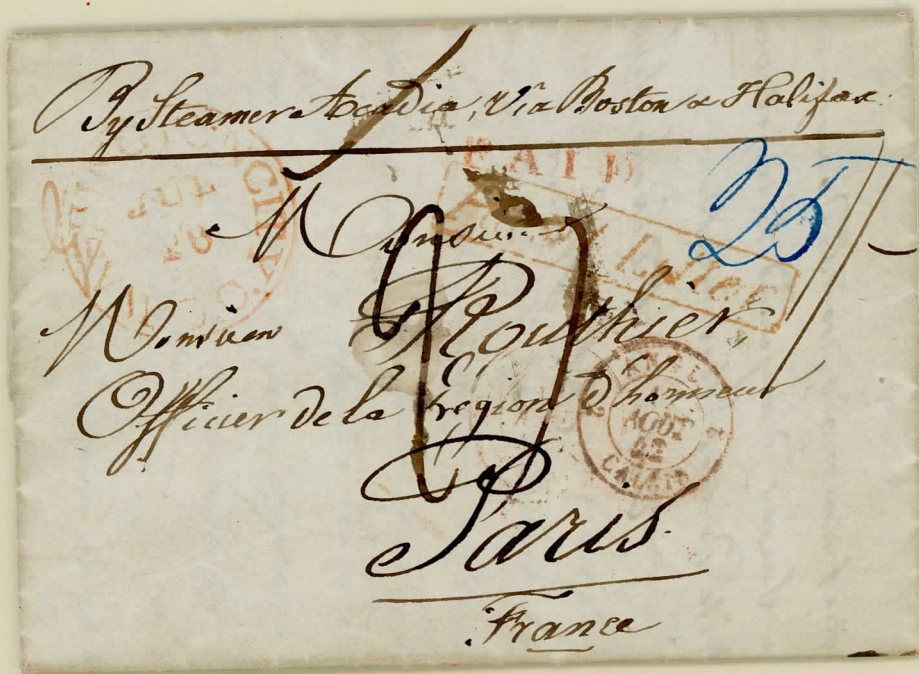 By Steamer Acadia, Via Boston & Halifax
PAID
25
JUL
Monsieur
Letter
Monsieur Routhier,
Officier de la Legion d'honneur
2 ANGL. 2
AOUT
42
CALAIS
Paris
France